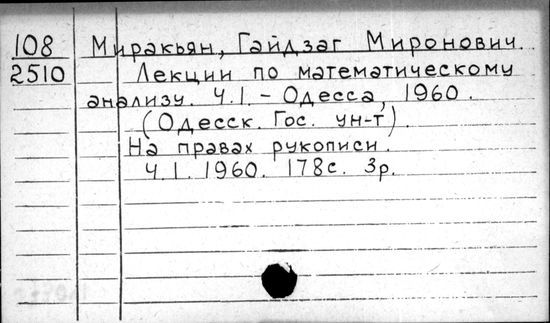 108
2510
Миракьян, Гайдзаг Миронович.
Лекции по математическому
анализу. Ч.1. – Одесса, 1960.
(Одесск. Гос. ун-т).
На правах рукописи.
Ч.1. 1960. 178с. 3р.